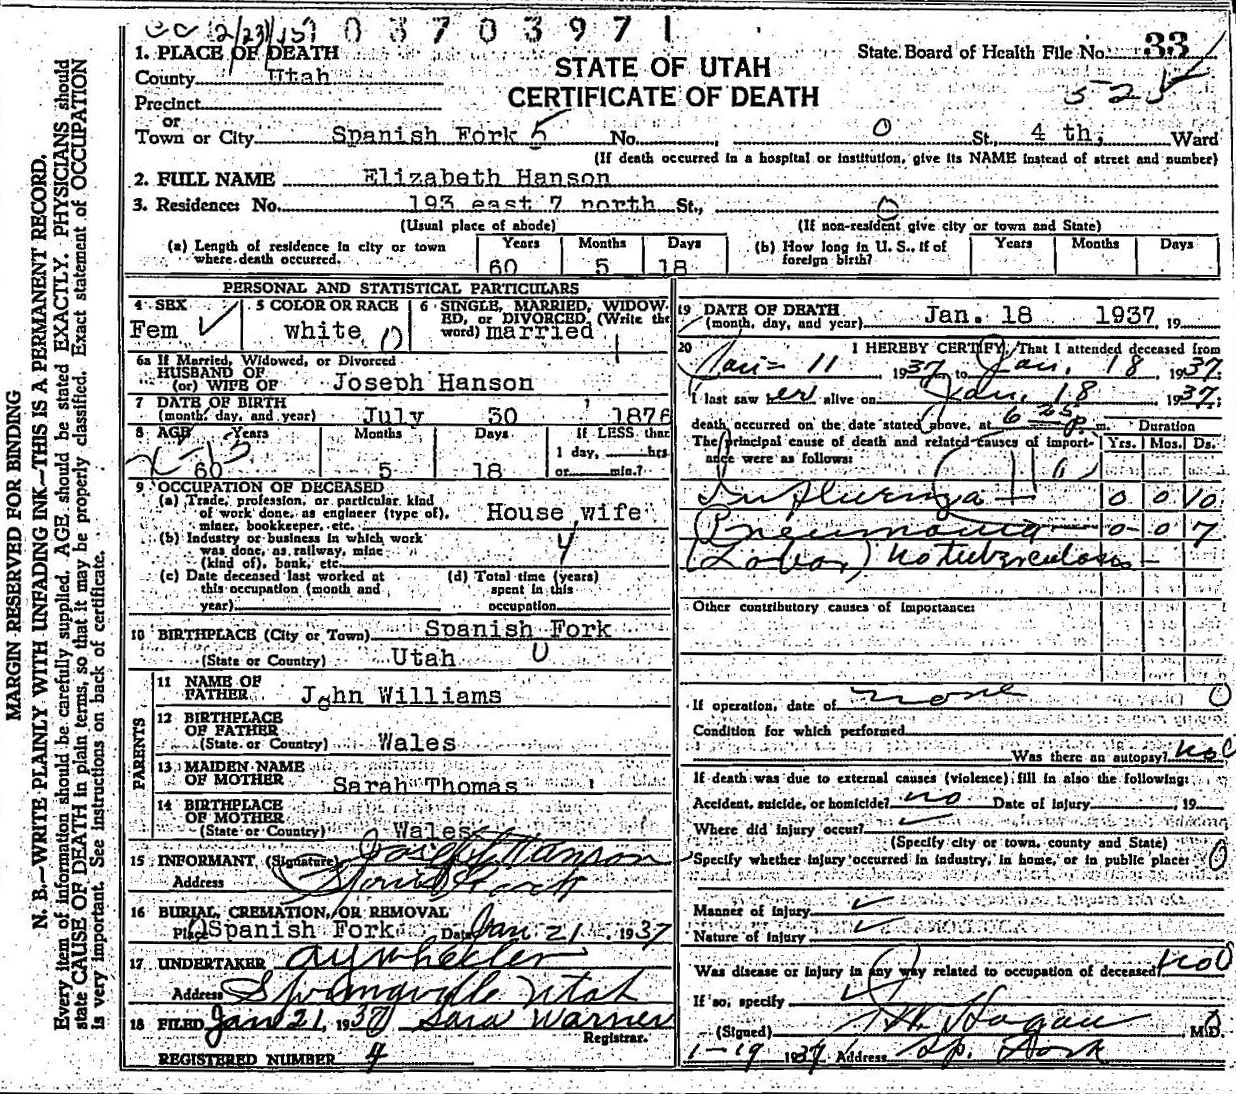 0 3 7 0 3 9 7 1
1. PLACE OF DEATH
County Utah
Precinct
or
Town or City Spanish Fork 5 No. 0 St., 4 th, Ward
STATE OF UTAH
CERTIFICATE OF DEATH
State Board of Health File No. 33
525
(If death occurred in a hospital or institution, give its NAME instead of street and number)
2. FULL NAME Elizabeth Hanson
3. Residence: No. 193 east 7 north St., 0
(Usual place of abode) (If non-resident give city or town and State)
(a) Length of residence in city or town where death occurred. Years 60 Months 5 Days 18
(b) How long in U. S., if of foreign birth? Years Months Days
PERSONAL AND STATISTICAL PARTICULARS
4 SEX Fem
5 COLOR OR RACE white
6 SINGLE, MARRIED, WIDOWED, or DIVORCED, (Write the word) married
6a If Married, Widowed, or Divorced
HUSBAND OF
(or) WIFE OF Joseph Hanson
7 DATE OF BIRTH
(month, day, and year) July 30 1876
8 AGE Years 60 Months 5 Days 18
If LESS than
1 day, hrs
or min.?
9 OCCUPATION OF DECEASED
(a) Trade, profession, or particular kind
of work done, as engineer (type of),
miner, bookkeeper, etc. House wife
(b) Industry or business in which work
was done, as railway, mine
(kind of), bank, etc.
(c) Date deceased last worked at
this occupation (month and
year)
(d) Total time (years)
spent in this
occupation
10 BIRTHPLACE (City or Town) Spanish Fork
(State or Country) Utah
PARENTS
11 NAME OF
FATHER John Williams
12 BIRTHPLACE
OF FATHER
(State or Country) Wales
13 MAIDEN NAME
OF MOTHER Sarah Thomas
14 BIRTHPLACE
OF MOTHER
(State or Country) Wales
15 INFORMANT, (Signature) Joseph Hanson
Address Spanish Fork
16 BURIAL, CREMATION, OR REMOVAL
Place Spanish Fork Date Jan 21 1937
17 UNDERTAKER A Y Wheeler
Address Springville Utah
18 FILED Jan 21, 1937 Sara Warner
Registrar.
REGISTERED NUMBER 4
19 DATE OF DEATH
(month, day, and year) Jan. 18 1937, 19
20 I HEREBY CERTIFY, That I attended deceased from
Jan - 11 1937, to Jan, 18 1937.
I last saw her alive on Jan, 18 1937;
death occurred on the date stated above, at 6 25 p. m. Duration
The principal cause of death and related causes of importance were as follows: Yrs. Mos. Ds.
Influenza 0 0 10
Pneumonia 0 0 7
(Lobar) no tuberculosis
Other contributory causes of importance:
If operation, date of none 0
Condition for which performed
Was there an autopsy? no
If death was due to external causes (violence) fill in also the following:
Accident, suicide, or homicide? no Date of injury , 19
Where did injury occur?
(Specify city or town, county and State)
Specify whether injury occurred in industry, in home, or in public place:
Manner of injury
Nature of injury
Was disease or injury in any way related to occupation of deceased? no
If so, specify
(Signed) Hagan M.D.
1-19 1937 Address Sp. Fork
MARGIN RESERVED FOR BINDING
N. B.—WRITE PLAINLY WITH UNFADING INK—THIS IS A PERMANENT RECORD.
Every item of information should be carefully supplied. AGE should be stated EXACTLY. PHYSICIANS should
state CAUSE OF DEATH in plain terms, so that it may be properly classified. Exact statement of OCCUPATION
is very important. See instructions on back of certificate.